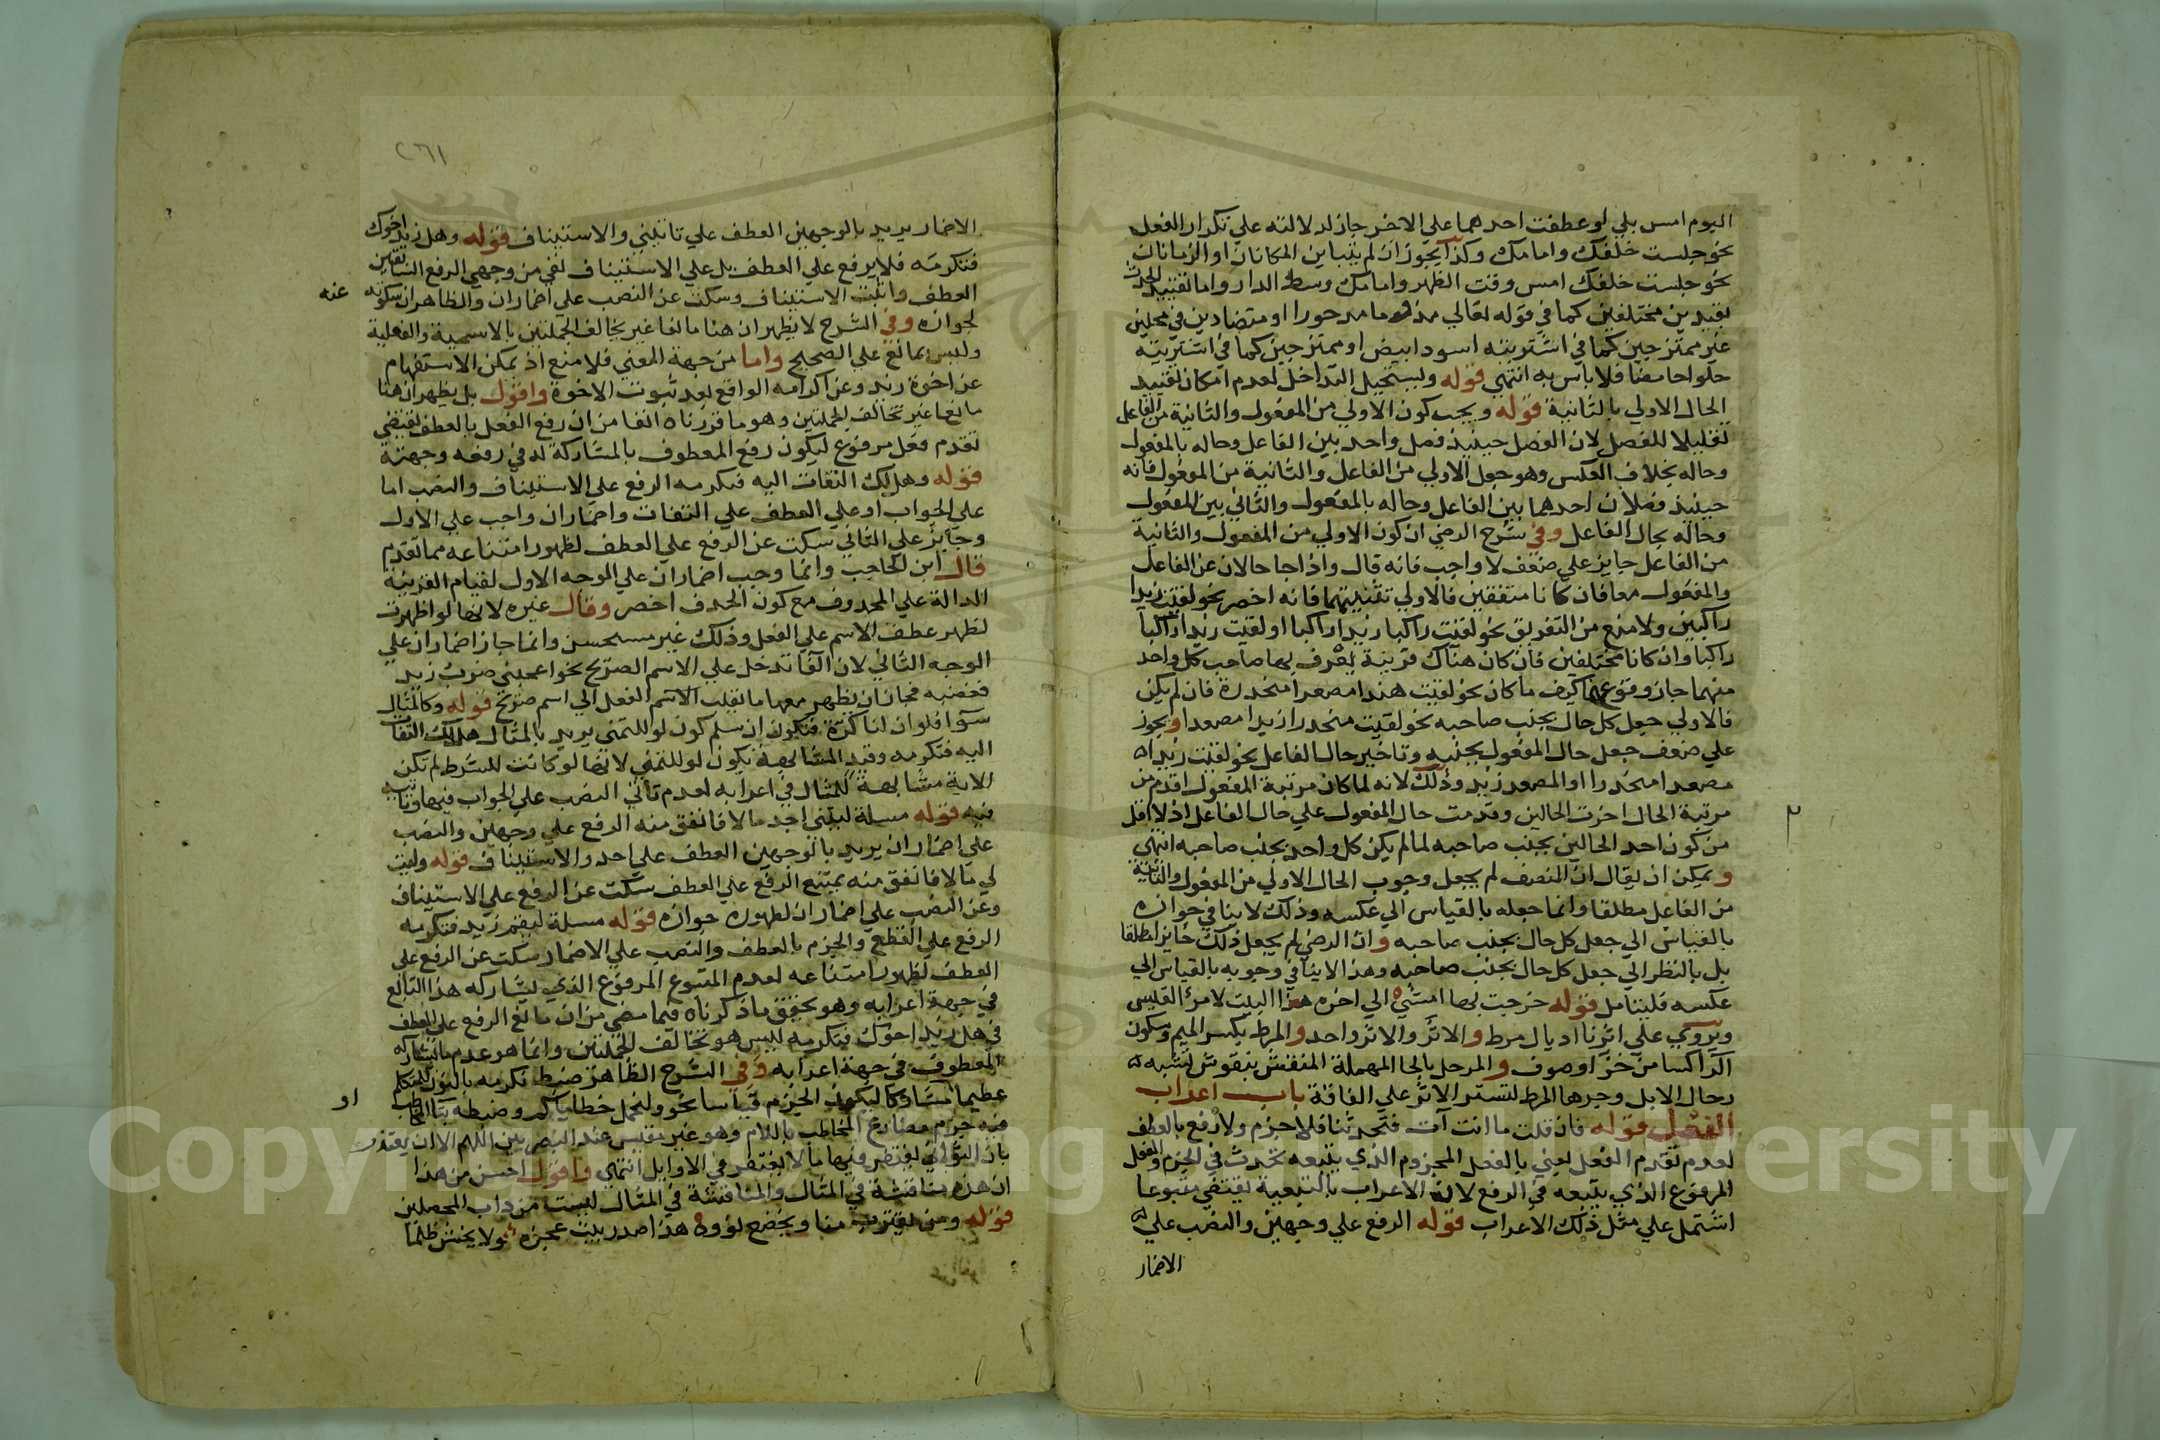 اليوم امس بلي لو عطفت احدهما علي الاخر جاز لدلالته علي تكرار الفعل
نحو جلست خلفك وامامك وكذا يجوز ان لم يتباين المكانان او الزمانان
نحو جلست خلفك امس وقت الظهر وامامك وسط الدار واما تقييد الحدث
بقيدين مختلفين كما في قوله تعالي مذموما مدحورا او متضادين في محلين
غير ممتزجين كما في اشتريته اسود ابيض او ممتزجين كما في اشتريته
حلوا حامضا فلا باس به انتهي قوله ويستحيل التداخل لعدم امكان تقييد
الحال الاولي بالثانية قوله ويجب كون الاولي من المفعول والثانية من الفاعل
تقليلا للفصل لان الفصل حينيذ فصل واحد بين الفاعل وحاله بالمفعول
وحاله بخلاف العكس وهو جعل الاولي من الفاعل والثانية من المفعول فانه
حينيذ فصلان احدهما بين الفاعل وحاله بالمفعول والثاني بين المفعول
وحاله بحال الفاعل وفي شرح الرضي ان كون الاولي من المفعول والثانية
من الفاعل جايز علي ضعف لا واجب فانه قال واذا جا حالان عن الفاعل
والمفعول معا فان كانا متفقين فالاولي تثنيتهما فانه اخصر نحو لقيت زيدا
راكبين ولا منع من التفريق نحو لقيت راكبا زيدا راكبا او لقيت زيدا راكبا
راكبا وان كانا مختلفين فان كان هناك قرينة يعرف بها صاحب كل واحد
منهما جاز وقوعهما كيف ما كان نحو لقيت هندا مصعدا منحدرة فان لم يكن
فالاولي جعل كل حال بجنب صاحبه نحو لقيت منحدرا زيدا مصعدا ويجوز
علي ضعف جعل حال المفعول بجنبه وتاخير حال الفاعل نحو لقيت زيدا
مصعدا منحدرا والمصعد زيد وذلك لانه لما كان مرتبة المفعول اقدم من
مرتبة الحال اخرت الحالين وقدمت حال المفعول علي حال الفاعل اذ لا اقل
من كون احد الحالين بجنب صاحبه لما لم يكن كل واحد بجنب صاحبه انتهي
ويمكن ان يقال ان المصنف لم يجعل وجوب الحال الاولي من المفعول والثانية
من الفاعل مطلقا وانما جعله بالقياس الي عكسه وذلك لا ينافي جوازه
بالقياس الي جعل كل حال بجنب صاحبه وان الرضي لم يجعل ذلك جايزا مطلقا
بل بالنظر الي جعل كل حال بجنب صاحبه وهذا لا ينافي وجوبه بالقياس الي
عكسه فليتامل قوله خرجت بها امشي الي اخره هذا البيت لامرئ القيس
ويروي علي اثرنا اذيال مرط والاثر والاثر واحد والمرط بكسر الميم وسكون
الرا كسا من خز او صوف والمرحل بالحا المهملة المنقش بنقوش تشبه
رحال الابل وجرها المرط لتستر الاثر علي القافة باب اعراب
الفعل قوله فان قلت ما انت آت فتحدثنا فلا جزم ولا رفع بالعطف
لعدم تقدم الفعل يعني بالفعل المجزوم الذي يتبعه تحدث في الجزم والفعل
المرفوع الذي يتبعه في الرفع لان الاعراب بالتبعية يقتضي متبوعا
اشتمل علي مثل ذلك الاعراب قوله الرفع علي وجهين والنصب علي
الاضمار
٢٦١
الاضمار يريد بالوجهين العطف علي تاتيني والاستيناف قوله وهل زيد اخوك
فتكرمه فلا يرفع علي العطف بل علي الاستيناف نفي من وجهي الرفع السابقين
العطف واثبت الاستيناف وسكت عن النصب علي اضمار ان والظاهر ان سكوته
عنه
لجوازه وفي الشرح لا يظهر ان هنا مانعا غير تخالف الجملتين بالاسمية والفعلية
وليس بمانع علي الصحيح واما من جهة المعني فلا منع اذ يمكن الاستفهام
عن اخوة زيد وعن اكرامه الواقع بعد ثبوت الاخوة واقول بل يظهر ان هنا
مانعا غير تخالف الجملتين وهو ما قررناه انفا من ان رفع الفعل بالعطف يقتضي
تقدم فعل مرفوع ليكون رفع المعطوف بالمشاركة له في رفعه وجهته
قوله وهل لك التفات اليه فتكرمه الرفع علي الاستيناف والنصب اما
علي الجواب او علي العطف علي التفات واضمار ان واجب علي الاول
وجايز علي الثاني سكت عن الرفع علي العطف لظهور امتناعه مما تقدم
قال ابن الحاجب وانما وجب اضمار ان علي الوجه الاول لقيام القرينة
الدالة علي المحذوف مع كون الحذف اخصر وقال غيره لانها لو اظهرت
لظهر عطف الاسم علي الفعل وذلك غير مستحسن وانما جاز اضمار ان علي
الوجه الثاني لان الفا تدخل علي الاسم الصريح نحو اعجبني ضرب زيد
فغضبه فجاز ان يظهر معها ما يقلب الفعل الي اسم صريح قوله وكالمثال
سوا فلو ان لنا كرة فنكون ان سلم كون لو للتمني يريد بالمثال هل لك التفات
اليه فتكرمه وقيد المشابهة بكون لو للتمني لانها لو كانت للشرط لم تكن
الاية مشابهة للمثال في اعرابه لعدم تاتي النصب علي الجواب فيها وتاتيه
فيه قوله مسلة ليتني اجد مالا فانفق منه الرفع علي وجهين والنصب
علي اضمار ان يريد بالوجهين العطف علي اجد والاستيناف قوله وليت
لي مالا فانفق منه يمتنع الرفع علي العطف سكت عن الرفع علي الاستيناف
وعن النصب علي اضمار ان لظهور جوازه قوله مسلة ليقم زيد فنكرمه
الرفع علي القطع والجزم بالعطف والنصب علي الاضمار سكت عن الرفع علي
العطف لظهور امتناعه لعدم المتبوع المرفوع الذي يشاركه هذا التابع
في جهة اعرابه وهو يحقق ما ذكرناه فيما مضي من ان مانع الرفع علي العطف
في هل زيد اخوك فتكرمه ليس هو تخالف الجملتين وانما هو عدم ما يشاركه
المعطوف في جهة اعرابه وفي الشرح الظاهر ضبط نكرمه بالنون للمتكلم
عظيما او مشاركا ليكون الجزم قياسا نحو ولنحمل خطاياكم وضبطه بتا الخطاب
او
فيه جزم مضارع المخاطب باللام وهو غير مقيس عند البصريين اللهم الا ان يعتذر
بان الثواني يغتفر فيها ما لا يغتفر في الاوايل انتهي واقول احسن من هذا
ان هذه مناقشة في المثال والمناقشة في المثال ليست من داب المحصلين
قوله ومن يقترب منا ويخضع نؤوه هذا صدر بيت عجزه ولا يخش ظلما